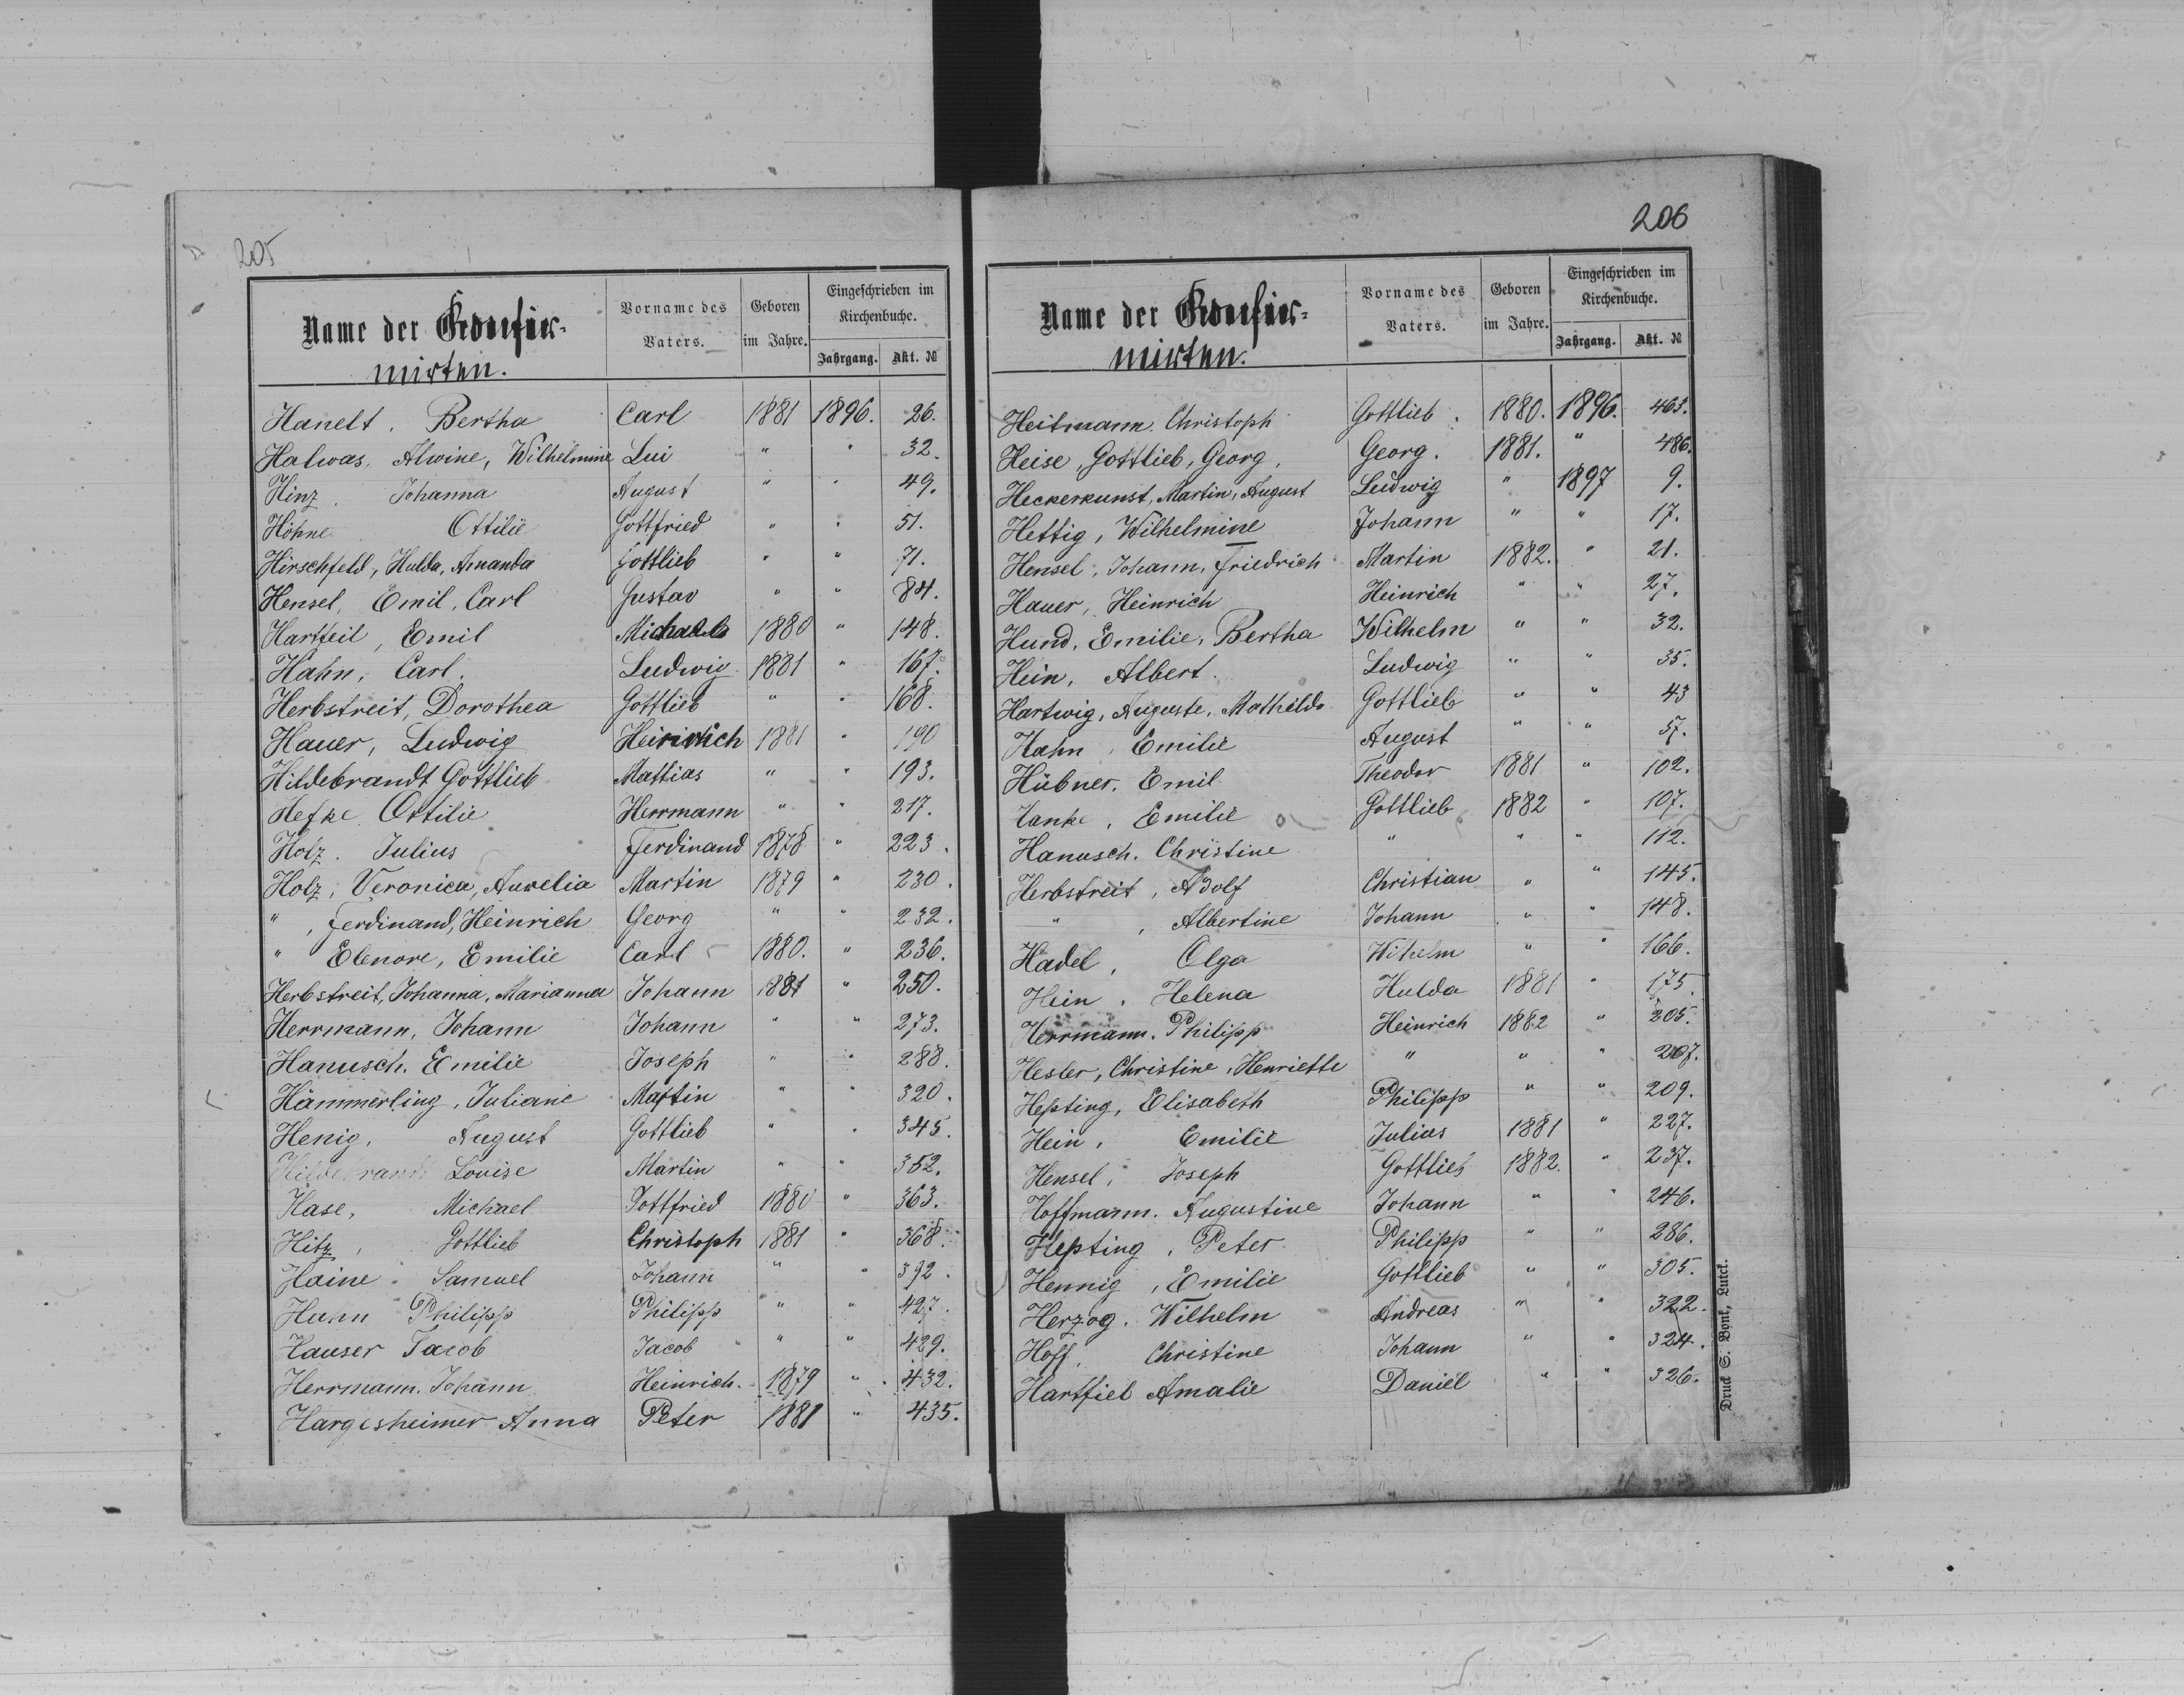 205
Name der Konfir-
mirten.
Vorname des Vaters.
Geboren im Jahre.
Eingeschrieben im Kirchenbuche.
Jahrgang. Akt. №
Hanelt. Bertha Carl 1881 1896. 26.
Halwas, Alwine, Wilhelmine Lui " " 32.
Hinz. Johanna August " " 49.
Höhne Ottilie Gottfried " " 51.
Hirschfeld, Hulda, Amanda Gottlieb " " 71.
Hensel, Emil, Carl Gustav " " 84.
Hartfeil, Emil Michael 1880 " 148.
Hahn, Carl. Ludwig 1881 " 167.
Herbstreit, Dorothea Gottlieb " " 168.
Hauer, Ludwig Heinrich 1881 " 190
Hildebrandt Gottlieb Mattias " " 193.
Hefke Ottilie Herrmann " " 217.
Holz. Julius Ferdinand 1878 " 223.
Holz, Veronica, Aurelia Martin 1879 " 230.
" , Ferdinand, Heinrich Georg " " 232.
" Elenore, Emilie Carl 1880. " 236.
Herbstreit, Johanna, Marianna Johann 1881 " 250.
Herrmann, Johann Johann " " 273.
Hanusch. Emilie Joseph " " 288.
Hämmerling, Juliane Martin " " 320.
Henig, August Gottlieb " " 345.
Hildebrandt Louise Martin " " 352.
Hase, Michael Gottfried 1880 " 363.
Hitz, Gottlieb Christoph 1881 " 368.
Haine Samuel Johann " " 392.
Hahn Philipp Philipp " " 427.
Hauser Jacob Jacob " " 429.
Herrmann. Johann Heinrich. 1879 " 432.
Hargesheimer Anna Peter 1881 " 435.
206
Name der Konfir-
mirten.
Vorname des Vaters.
Geboren im Jahre.
Eingeschrieben im Kirchenbuche.
Jahrgang. Akt. №
Heitmann. Christoph Gottlieb. 1880. 1896. 463.
Heise, Gottlieb, Georg, Georg. 1881. " 486.
Heckerkunst, Martin, August Ludwig " 1897 9.
Hettig, Wilhelmine Johann " " 17.
Hensel, Johann, Friedrich Martin 1882. " 21.
Hauer, Heinrich Heinrich " " 27.
Hund, Emilie, Bertha Wilhelm " " 32.
Hein, Albert. Ludwig " " 35.
Hartwig, Auguste, Mathilde Gottlieb " " 43
Hahn, Emilie August " " 57.
Hübner, Emil Theodor 1881 " 102.
Hanke, Emilie Gottlieb 1882 " 107.
Hanusch. Christine " " " 112.
Herbstreit, Adolf Christian " " 145.
" , Albertine Johann " " 148.
Hädel, Olga Wihelm " " 166.
Hein, Helena Hulda 1881 " 175.
Herrmann. Philipp Heinrich 1882 " 205.
Hesler, Christine, Henriette " " " 207.
Hepting, Elisabeth Philipp " " 209.
Hein, Emilie Julias 1881 " 227.
Hensel, Joseph Gottlieb 1882. " 237.
Hoffmann. Augustine Johann " " 246.
Hepting, Peter Philipp " " 286.
Hennig, Emilie Gottlieb " " 305.
Herzog. Wilhelm Andreas " " 322.
Hoff, Christine Johann " " 324.
Hartfiel Amalie Daniel " " 326.
Druck S. Bonk, Lutck.